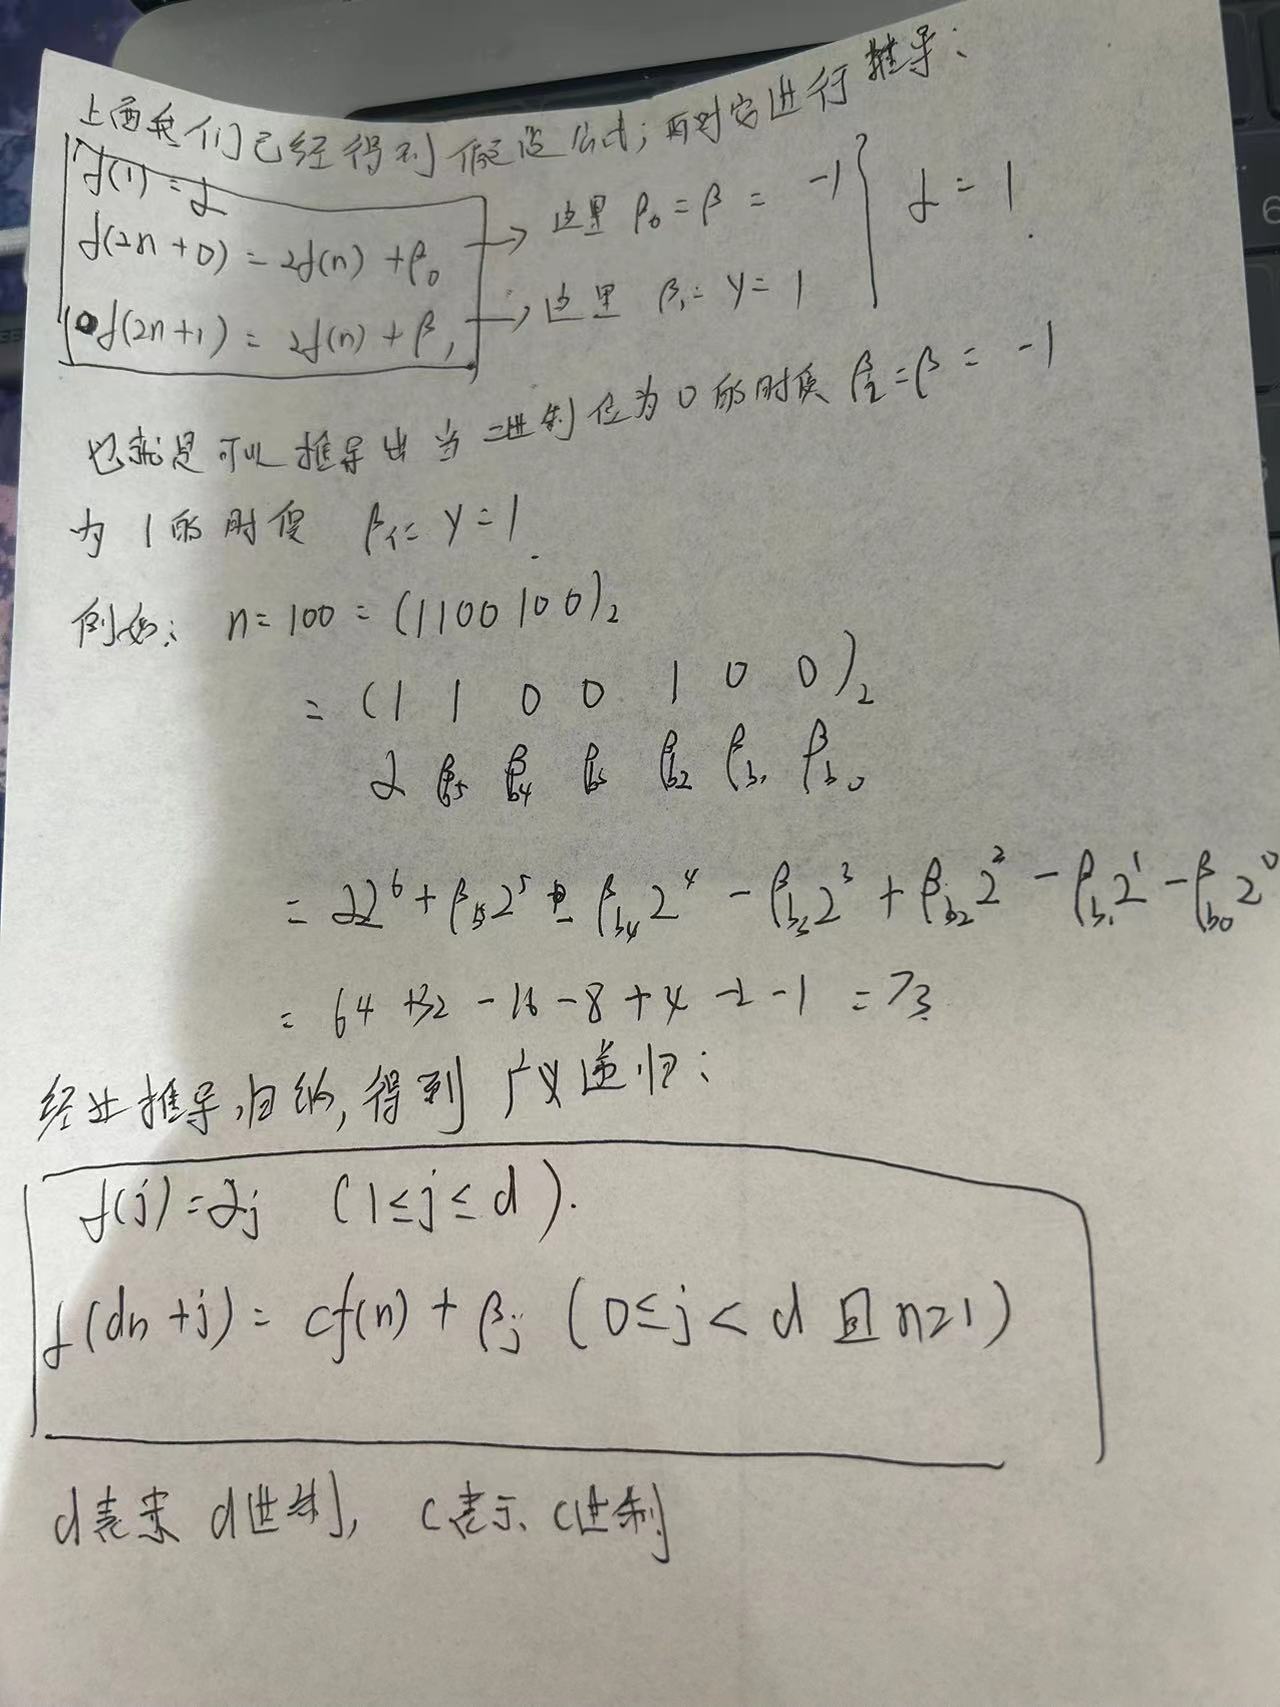 上面我们已经得到假设公式;再对它进行推导:
f(1) = α
f(2n+0) = 2f(n) + β₀ → 这里 β₀ = β = -1
f(2n+1) = 2f(n) + β₁ → 这里 β₁ = γ = 1
α = 1
也就是可以推导出当二进制位为0的时候 β = β = -1
为1的时候 β = γ = 1
例如: n = 100 = (1100100)₂
= (1 1 0 0 1 0 0)₂
α β_b5 β_b4 β_b3 β_b2 β_b1 β_b0
= α2⁶ + β_b5 2⁵ - β_b4 2⁴ - β_b3 2³ + β_b2 2² - β_b1 2¹ - β_b0 2⁰
= 64 + 32 - 16 - 8 + 4 - 2 - 1 = 73
经过推导,归纳,得到广义递归:
f(j) = αj (1≤j≤d).
f(dn+j) = cf(n) + βj (0≤j<d 且 n≥1)
d表示d进制, c表示c进制